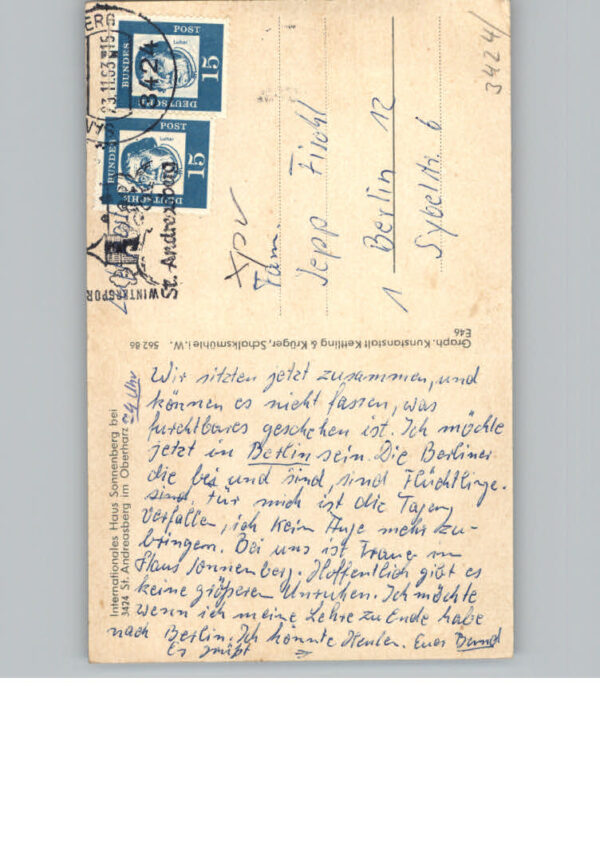 BERG
23.11.63-15
3424
POST
Luther
15
DEUTSCHE
BUNDES
POST
Luther
15
DEUTSCHE
BUNDES
WINTERSPOR
St. Andreasberg
3424/
Fam.
Sepp Fichl
1 Berlin 12
Sybelstr. 6
Graph. Kunstanstalt Kettling & Krüger, Schalksmühle i. W. 562 86
E46
Internationales Haus Sonnenberg bei
3424 St. Andreasberg im Oberharz
24 Uhr
Wir sitzten jetzt zusammen, und
können es nicht fassen, was
furchtbares geschehen ist. Ich möchte
jetzt in Berlin sein. Die Berliner
die bei und sind, sind Flüchtlinge.
sind, für mich ist die Tagung
Verfallen, ich kein Auge mehr zu-
bringen. Bei uns ist Trauer im
Haus Sonnenberg. Hoffentlich gibt es
keine größeren Unruhen. Ich möchte
wenn ich meine Lehre zu Ende habe
nach Berlin. Ich könnte Heulen. Euer Bernd
Es grüßt